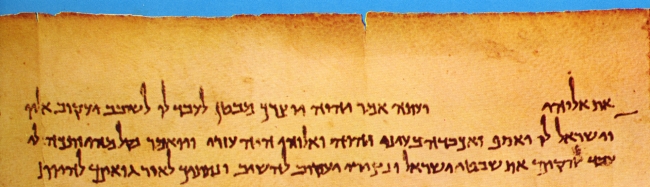 את אלוהי ועתה אמר יהוה יוצרך מבטן לעבד לו לשובב יעקוב אליו
וישראל לו יאסף ואכבדה בעיני יהוה ואלוהי היה עזרי ויאמר הנקל מהיותכה לי
עבד להקים את שבטי ישראל ונצירי יעקוב להשיב ונתתיך לאור גואים להיות